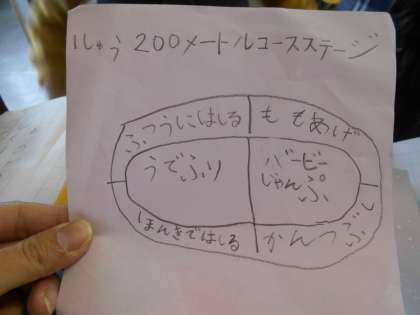 1しゅう200メートルコースステージ
ふつうにはしる
ももあげ
うでふり
バービー
じゃんぷ
ほんきではしる
かんつぶし